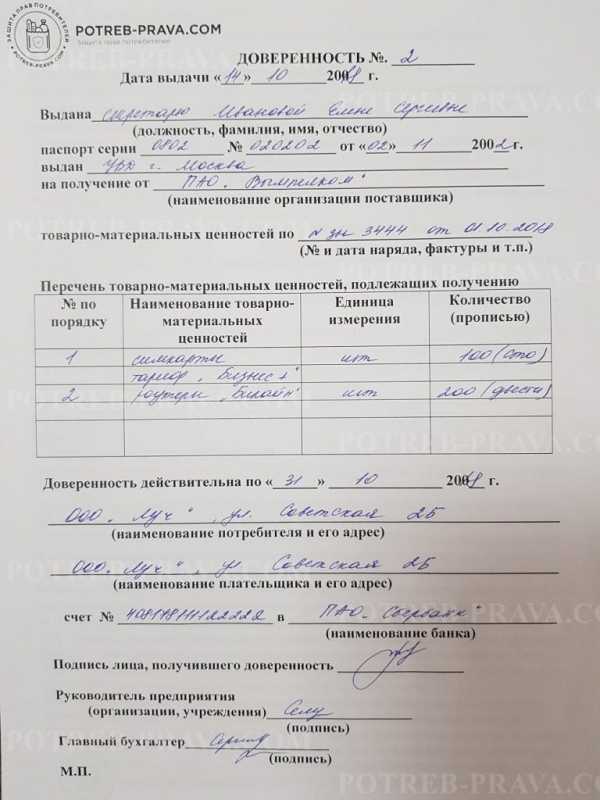 ЗАЩИТА ПРАВ ПОТРЕБИТЕЛЕЙ
POTREB-PRAVA.COM
POTREB-PRAVA.COM
ЗАЩИТА ПРАВ ПОТРЕБИТЕЛЕЙ
ДОВЕРЕННОСТЬ №. 2
Дата выдачи «14» 10 200 г.
Выдана секретарю Ивановой Елене Сергеевне
(должность, фамилия, имя, отчество)
паспорт серии 0802 № 020202 от «02» 11 2002 г.
выдан УВД г. Москва
на получение от ПАО „Вымпелком"
(наименование организации поставщика)
товарно-материальных ценностей по 3444 от 01.10.2019
(№ и дата наряда, фактуры и т.п.)
Перечень товарно-материальных ценностей, подлежащих получению
№ по порядку Наименование товарно-материальных ценностей Единица измерения Количество (прописью)
1 симкарты шт 100 (сто)
тариф „Бизнес+"
2 роутеры „Билайн" шт 200 (двести)
Доверенность действительна по «31» 10 200 г.
ООО „Луч", ул. Советская 2Б
(наименование потребителя и его адрес)
ООО „Луч", ул Советская 2Б
(наименование плательщика и его адрес)
счет № в ПАО „Сбербанк"
(наименование банка)
Подпись лица, получившего доверенность
Руководитель предприятия
(организации, учреждения)
(подпись)
Главный бухгалтер
(подпись)
М.П.